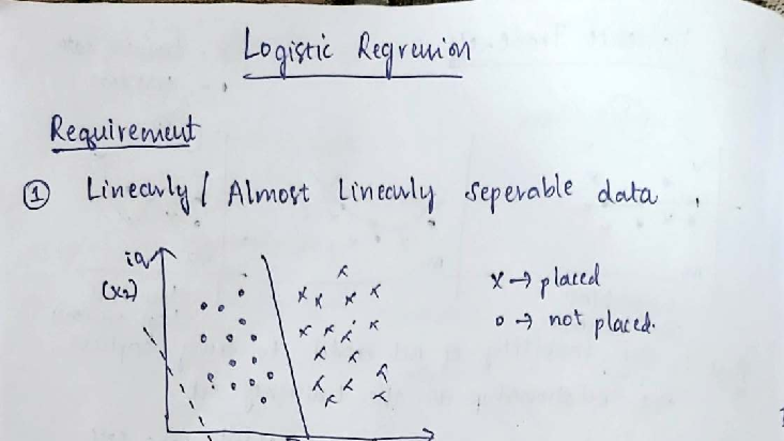 Logistic Regression
Requirement
① Linearly / Almost Linearly seperable data,
iq
(x₂)
x → placed
o → not placed.